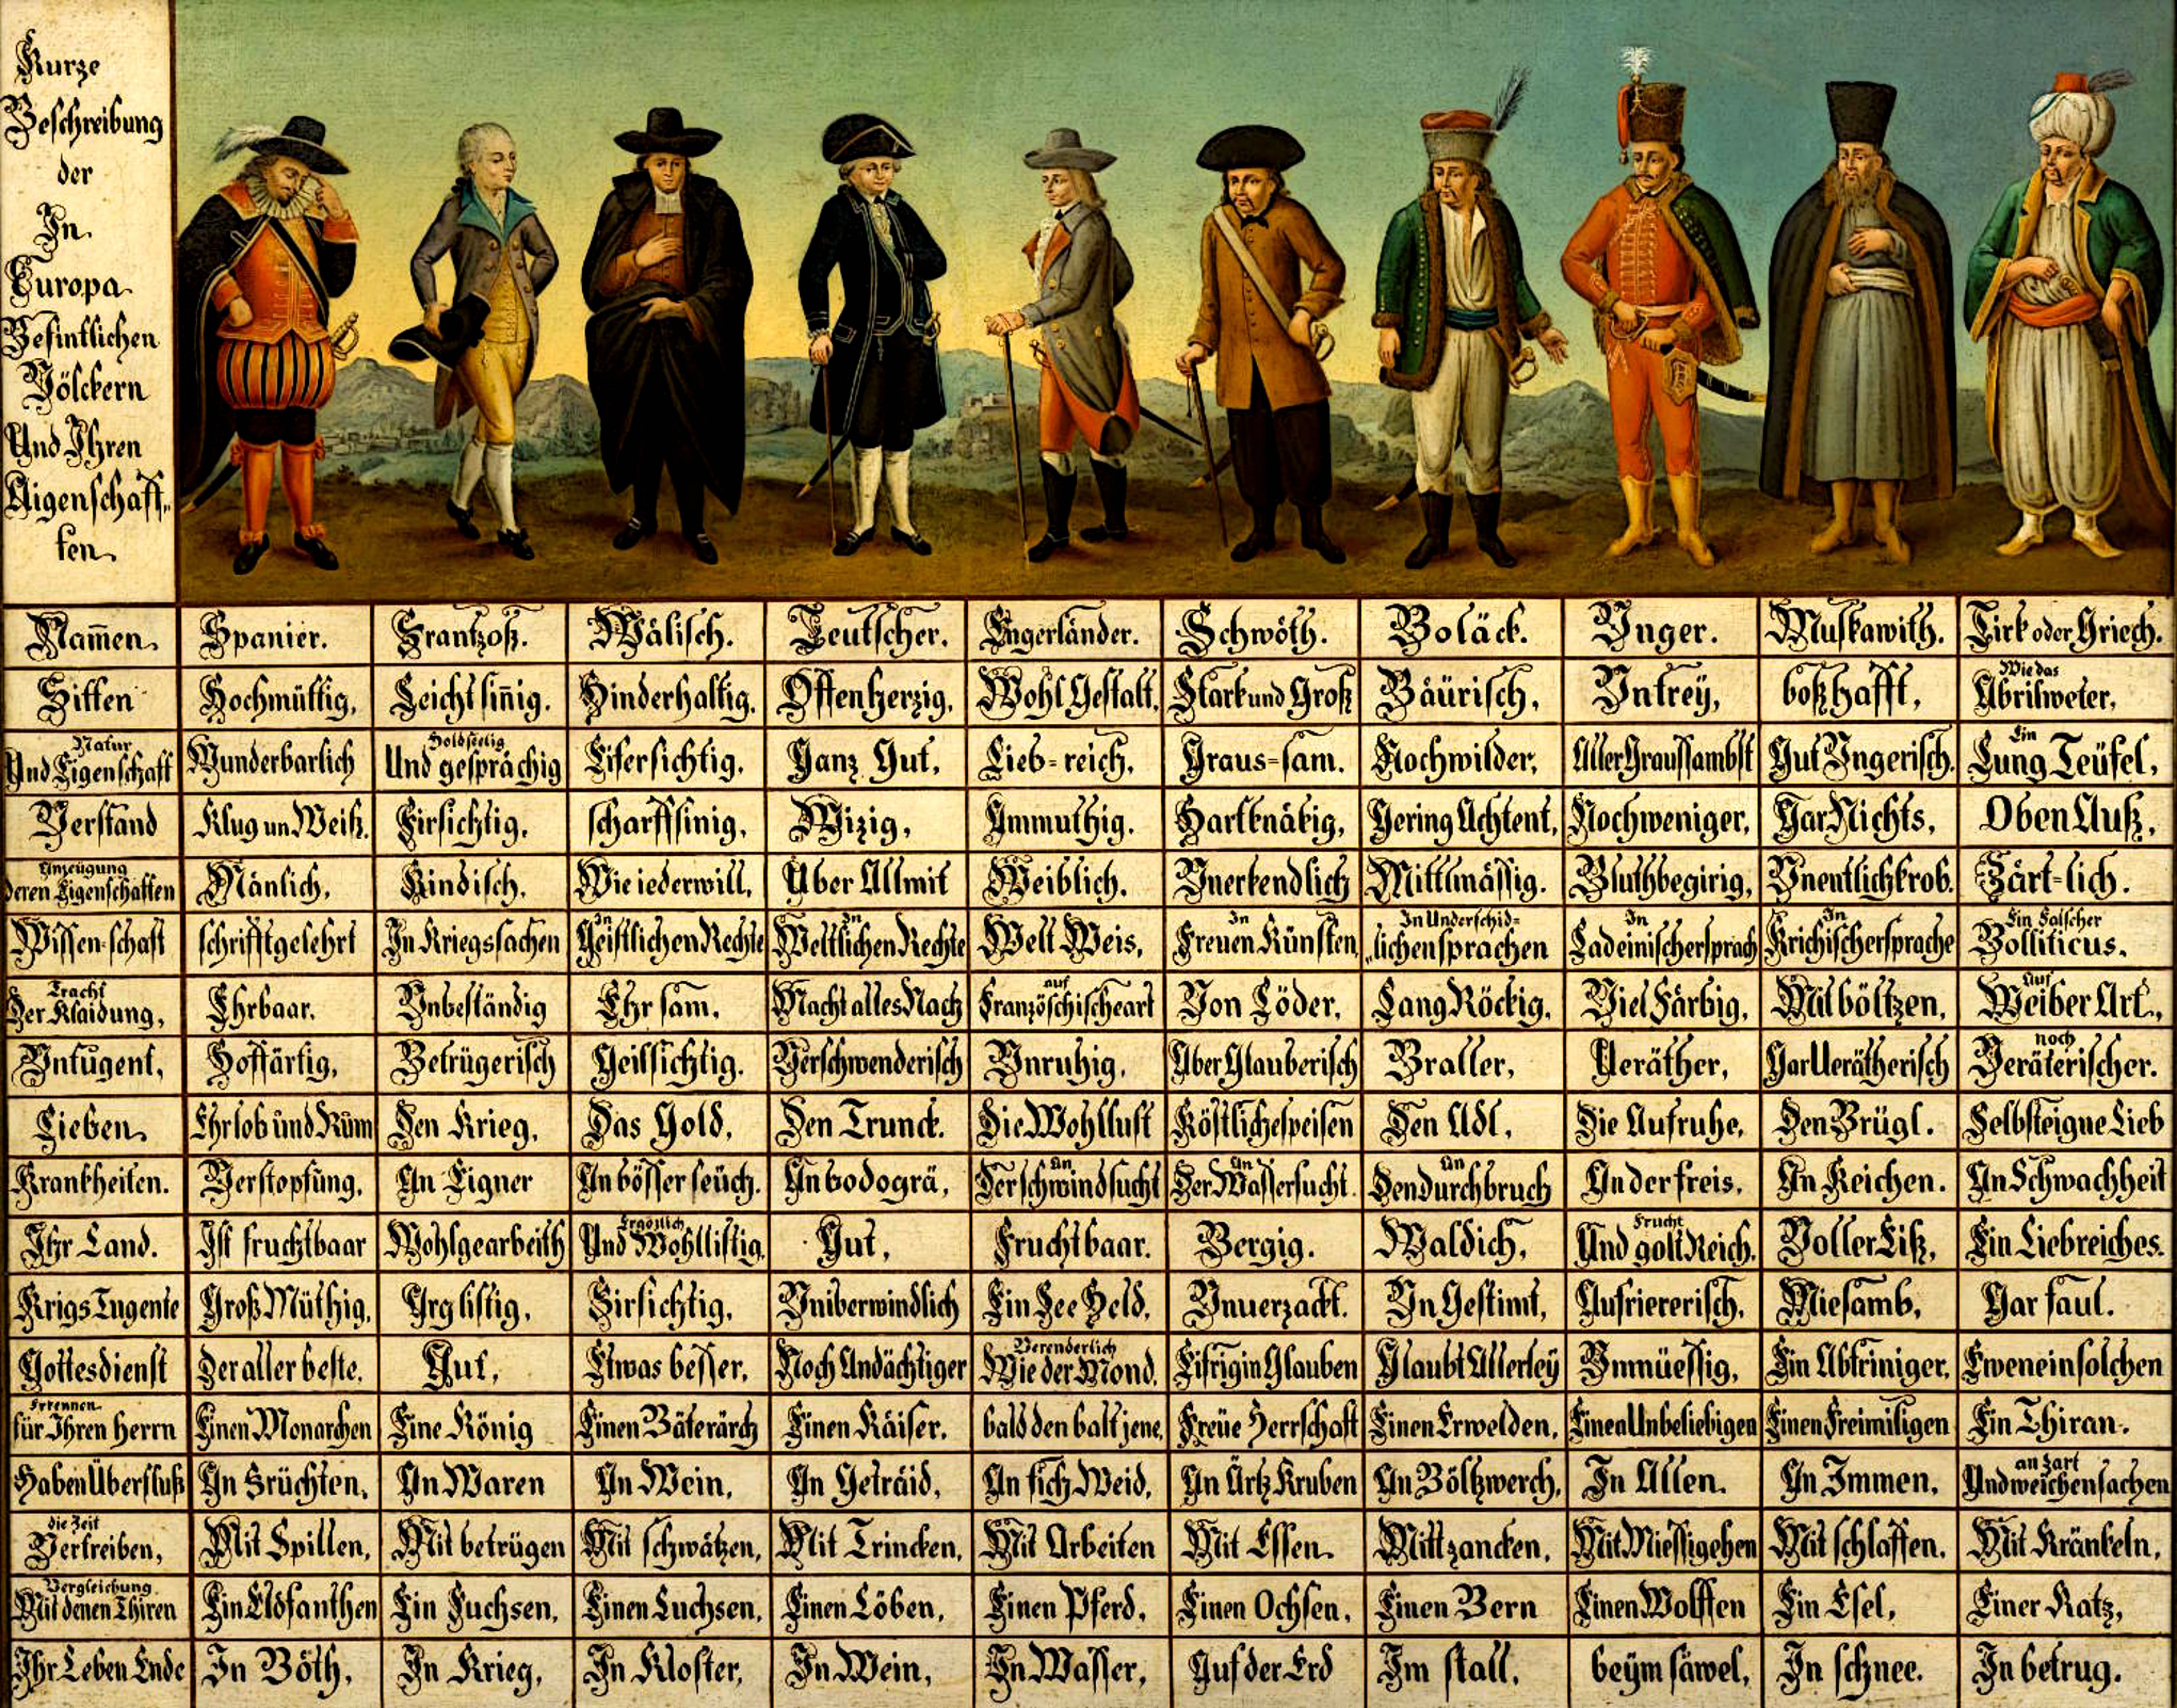 Kurze
Beschreibung
der
In
Europa
Befintlichen
Völckern
Und Ihren
Aigenschaff„
ten.
Nam̄en. Spanier. Frantzoß. Wälisch. Teutscher. Engerländer. Schwöth. Boläck. Vnger. Muskawith. Tirk oder Griech.
Sitten Hochmüttig, Leicht sin̄ig. Hinderhaltig, Offenherzig, Wohl Gestalt, Stark und Groß Bäurisch, Vntrey, boßhafft, Wie das Abrilweter,
Natur Und Eigenschaft Wunderbarlich Holdseelig Und gesprächig Eifersichtig. Ganz Gut, Lieb=reich, Graus=sam. Nochwilder, Aller Graussambst Gut Vngerisch. Ein Lung Teüfel,
Verstand Klug un Weiß. Firsichtig, scharffsinig, Wizig, Ammuthig. Hartknäkig, Gering Achtent, Nochweniger, Gar Nichts, Oben Auß,
Anzeügung deren Eigenschaften Mänlich, Kindisch, Wie iederwill, Über Allmit Weiblich. Vnerkendlich Mittlmässig. Bluthbegirig, Vnentlichkrob. Zärt-lich.
Wissen-schaft schrifftgelehrt In Kriegssachen In Geistlichen Rechte In Weltlichen Rechte Welt Weis, In Freuen Künsten, In Underschid= „lichen sprachen In Ladeinischersprach In Krichischersprache Ein Falscher Bolliticus.
Tracht Der Klaidung, Ehrbaar. Vnbeständig Ehr sam. Macht alles Nach auf Französchischeart Von Löder, Lang Röckig, Viel Färbig, Mit böltzen, Auf Weiber Art.,
Vntugent, Hoffärtig, Betrügerisch Geilsichtig. Verschwenderisch Vnruhig. Aber Glauberisch Braller, Veräther, Gar Verätherisch noch Veräterischer.
Lieben. Ehrlob ünd Rüm Den Krieg, Das Gold, Den Trunck. Die Wohllust Köstlichespeisen Den Adl, Die Aufruhe, Den Brügl. Selbsteigne Lieb
Krankheiten. Verstopfung, An Eigner An bösser seüch. An bodogrä, An Der schwindsucht An Der Wassersucht. An Den durchbruch An der freis, An Keichen. An Schwachheit
Ihr Land. Ist fruchtbaar Wohlgearbeith Ergözlich Und Wohllistig. Gut, Fruchtbaar. Bergig. Waldich, Frucht Und golt Reich. Voller Eiß, Ein Liebreiches.
Krigs Tugente Groß Müthig, Arg listig, Firsichtig, Vniberwindlich Ein See Held, Vnuerzackt. Vn Gestimt, Aufriererisch, Miesamb, Gar faul.
Gottesdienst Der aller beste. Gut, Etwas besser, Noch Andächtiger Verenderlich Wie der Mond. Eifrigin Glauben Glaubt Allerley Vnmüessig, Ein Abtriniger, Eweneinsolchen
Erkennen für Ihren Herrn Einen Monarchen Eine König Einen Bäterärch Einen Käiser. bald den balt jene, Freüe Herrschaft Einen Erwelden, Einen Unbeliebigen Einen Freimiligen Ein Thiran.
Haben Überfluß An Früchten, An Waren An Wein, An Geträid, An fich Weid, An Ärtz Kruben An Böltzwerch, In Allen. An Immen, an Zart Und weichen sachen
die Zeit Vertreiben, Mit Spillen, Mit betrügen Mit schwätzen, Mit Trincken, Mit Arbeiten Mit Essen. Mitt zancken, Mit Miessigehen Mit schlaffen. Mit Kränkeln,
Vergleichung Mit denen Thiren Ein Eldfanthen Ein Fuchsen, Einen Luchsen, Einen Löben, Einen Pferd, Einen Ochsen, Einen Bern Einen Wolffen Ein Esel, Einer Katz,
Ihr Leben Ende In Böth, In Krieg, In Kloster, In Wein, In Wasser, Auf der Erd Im stall, beÿm säwel, In schnee. In betrug.